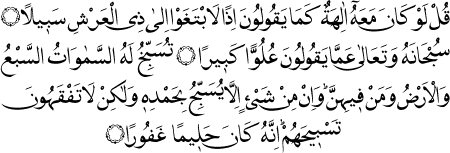 قُلْ لَوْ كَانَ مَعَهُٓ اٰلِهَةٌ كَمَا يَقُولُونَ اِذًا لَابْتَغَوْا اِلٰى ذِي الْعَرْشِ سَب۪يلًا ۝
سُبْحَانَهُ وَتَعَالٰى عَمَّا يَقُولُونَ عُلُوًّا كَب۪يرًا ۝ تُسَبِّحُ لَهُ السَّمٰوَاتُ السَّبْعُ
وَالْاَرْضُ وَمَنْ ف۪يهِنَّۜ وَاِنْ مِنْ شَيْءٍ اِلَّا يُسَبِّحُ بِحَمْدِه۪ وَلٰكِنْ لَا تَفْقَهُونَ
تَسْب۪يحَهُمْۜ اِنَّهُ كَانَ حَل۪يمًا غَفُورًا ۝